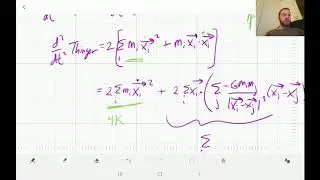 d²/dt² Thinger = 2 [ Σ_i m_i ẋ_i² + m_i x_i · ẍ_i ]
= 2 Σ_i m_i ẋ_i² + 2 Σ_i x_i · ( Σ_j -G m_i m_j / |x_i - x_j|³ (x_i - x_j)
4K
Σ